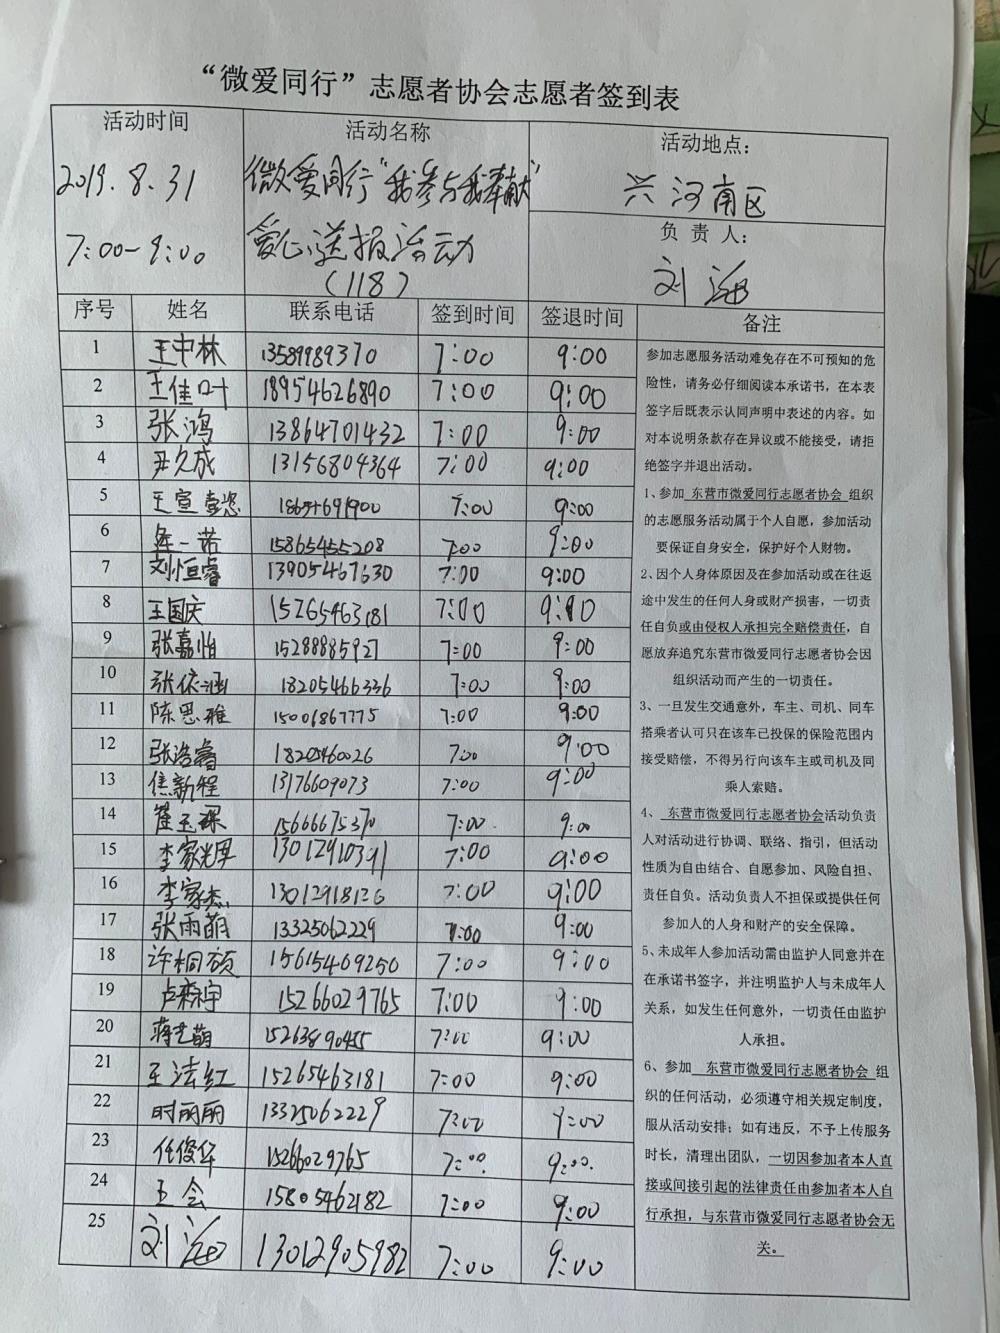 “微爱同行”志愿者协会志愿者签到表
活动时间 活动名称 活动地点：
2019.8.31 微爱同行“我参与我奉献” 兴河南区
7:00-9:00 爱心送报活动 负责人：
(118) 刘海
序号 姓名 联系电话 签到时间 签退时间 备注
1 王中林 13589989370 7:00 9:00
2 王佳叶 18954626890 7:00 9:00
3 张鸿 13864701432 7:00 9:00
4 尹久成 13156804364 7:00 9:00
5 王宣懿恣 18654691900 7:00 9:00
6 一诺 15865455208 7:00 9:00
7 刘恒睿 13905467630 7:00 9:00
8 王国庆 15265463181 7:00 9:00
9 张嘉怡 15288885927 7:00 9:00
10 张依涵 18205466336 7:00 9:00
11 陈思雅 15006867775 7:00 9:00
12 张浩睿 18205460026 7:00 9:00
13 焦新程 13176609073 7:00 9:00
14 15666675370 7:00 9:00
15 李家辉 13012910391 7:00 9:00
16 李家杰 13012918126 7:00 9:00
17 张雨萌 13325062229 7:00 9:00
18 许桐硕 15615469250 7:00 9:00
19 卢森宇 15266029765 7:00 9:00
20 蒋艺萌 15263890455 7:00 9:00
21 王法红 15265463181 7:00 9:00
22 时丽丽 13325062229 7:00 9:00
23 任俊华 15266029765 7:00 9:00
24 王会 15805462182 7:00 9:00
25 刘海 13012905982 7:00 9:00
参加志愿服务活动难免存在不可预知的危
险性，请务必仔细阅读本承诺书，在本表
签字后既表示认同声明中表述的内容。如
对本说明条款存在异议或不能接受，请拒
绝签字并退出活动。
1、参加 东营市微爱同行志愿者协会 组织
的志愿服务活动属于个人自愿，参加活动
要保证自身安全，保护好个人财物。
2、因个人身体原因及在参加活动或在往返
途中发生的任何人身或财产损害，一切责
任自负或由侵权人承担完全赔偿责任，自
愿放弃追究东营市微爱同行志愿者协会因
组织活动而产生的一切责任。
3、一旦发生交通意外，车主、司机、同车
搭乘者认可只在该车已投保的保险范围内
接受赔偿，不得另行向该车主或司机及同
乘人索赔。
4、 东营市微爱同行志愿者协会活动负责
人对活动进行协调、联络、指引，但活动
性质为自由结合、自愿参加、风险自担、
责任自负。活动负责人不担保或提供任何
参加人的人身和财产的安全保障。
5、未成年人参加活动需由监护人同意并在
在承诺书签字，并注明监护人与未成年人
关系，如发生任何意外，一切责任由监护
人承担。
6、参加 东营市微爱同行志愿者协会 组
织的任何活动，必须遵守相关规定制度，
服从活动安排；如有违反，不予上传服务
时长，清理出团队，一切因参加者本人直
接或间接引起的法律责任由参加者本人自
行承担，与东营市微爱同行志愿者协会无
关。